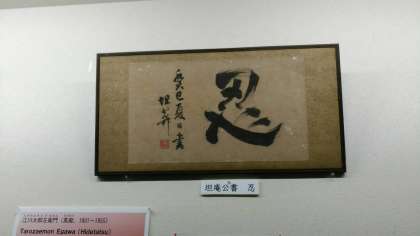 忍
癸巳夏日書
坦菴
坦庵公書 忍
江川太郎左衛門（英龍，1801−1855）
Tarozaemon Egawa (Hidetatsu)